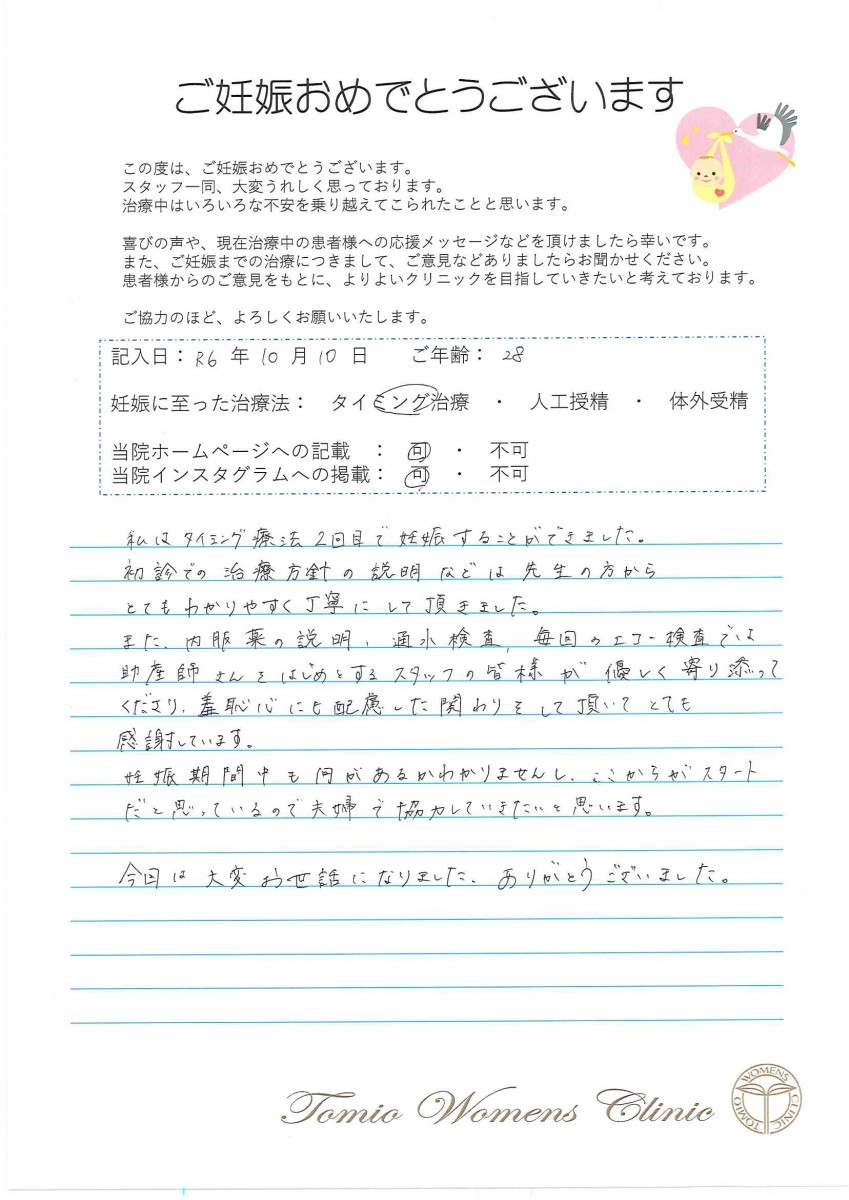 ご妊娠おめでとうございます
この度は、ご妊娠おめでとうございます。
スタッフ一同、大変うれしく思っております。
治療中はいろいろな不安を乗り越えてこられたことと思います。
喜びの声や、現在治療中の患者様への応援メッセージなどを頂けましたら幸いです。
また、ご妊娠までの治療につきまして、ご意見などありましたらお聞かせください。
患者様からのご意見をもとに、よりよいクリニックを目指していきたいと考えております。
ご協力のほど、よろしくお願いいたします。
記入日：R6 年 10 月 10 日 ご年齢：28
妊娠に至った治療法： タイミング治療 ・ 人工授精 ・ 体外受精
当院ホームページへの記載 ： 可 ・ 不可
当院インスタグラムへの掲載： 可 ・ 不可
私はタイミング療法2回目で妊娠することができました。
初診での治療方針の説明などは先生の方から
とてもわかりやすく丁寧にして頂きました。
また、内服薬の説明、通水検査、毎回のエコー検査では
助産師さんをはじめとするスタッフの皆様が優しく寄り添って
くださり、羞恥心にも配慮した関わりをして頂いてとても
感謝しています。
妊娠期間中も何があるかわかりませんし、ここからがスタート
だと思っているので夫婦で協力していきたいと思います。
今回は大変お世話になりました、ありがとうございました。
Tomio Womens Clinic
TOMIO WOMENS CLINIC